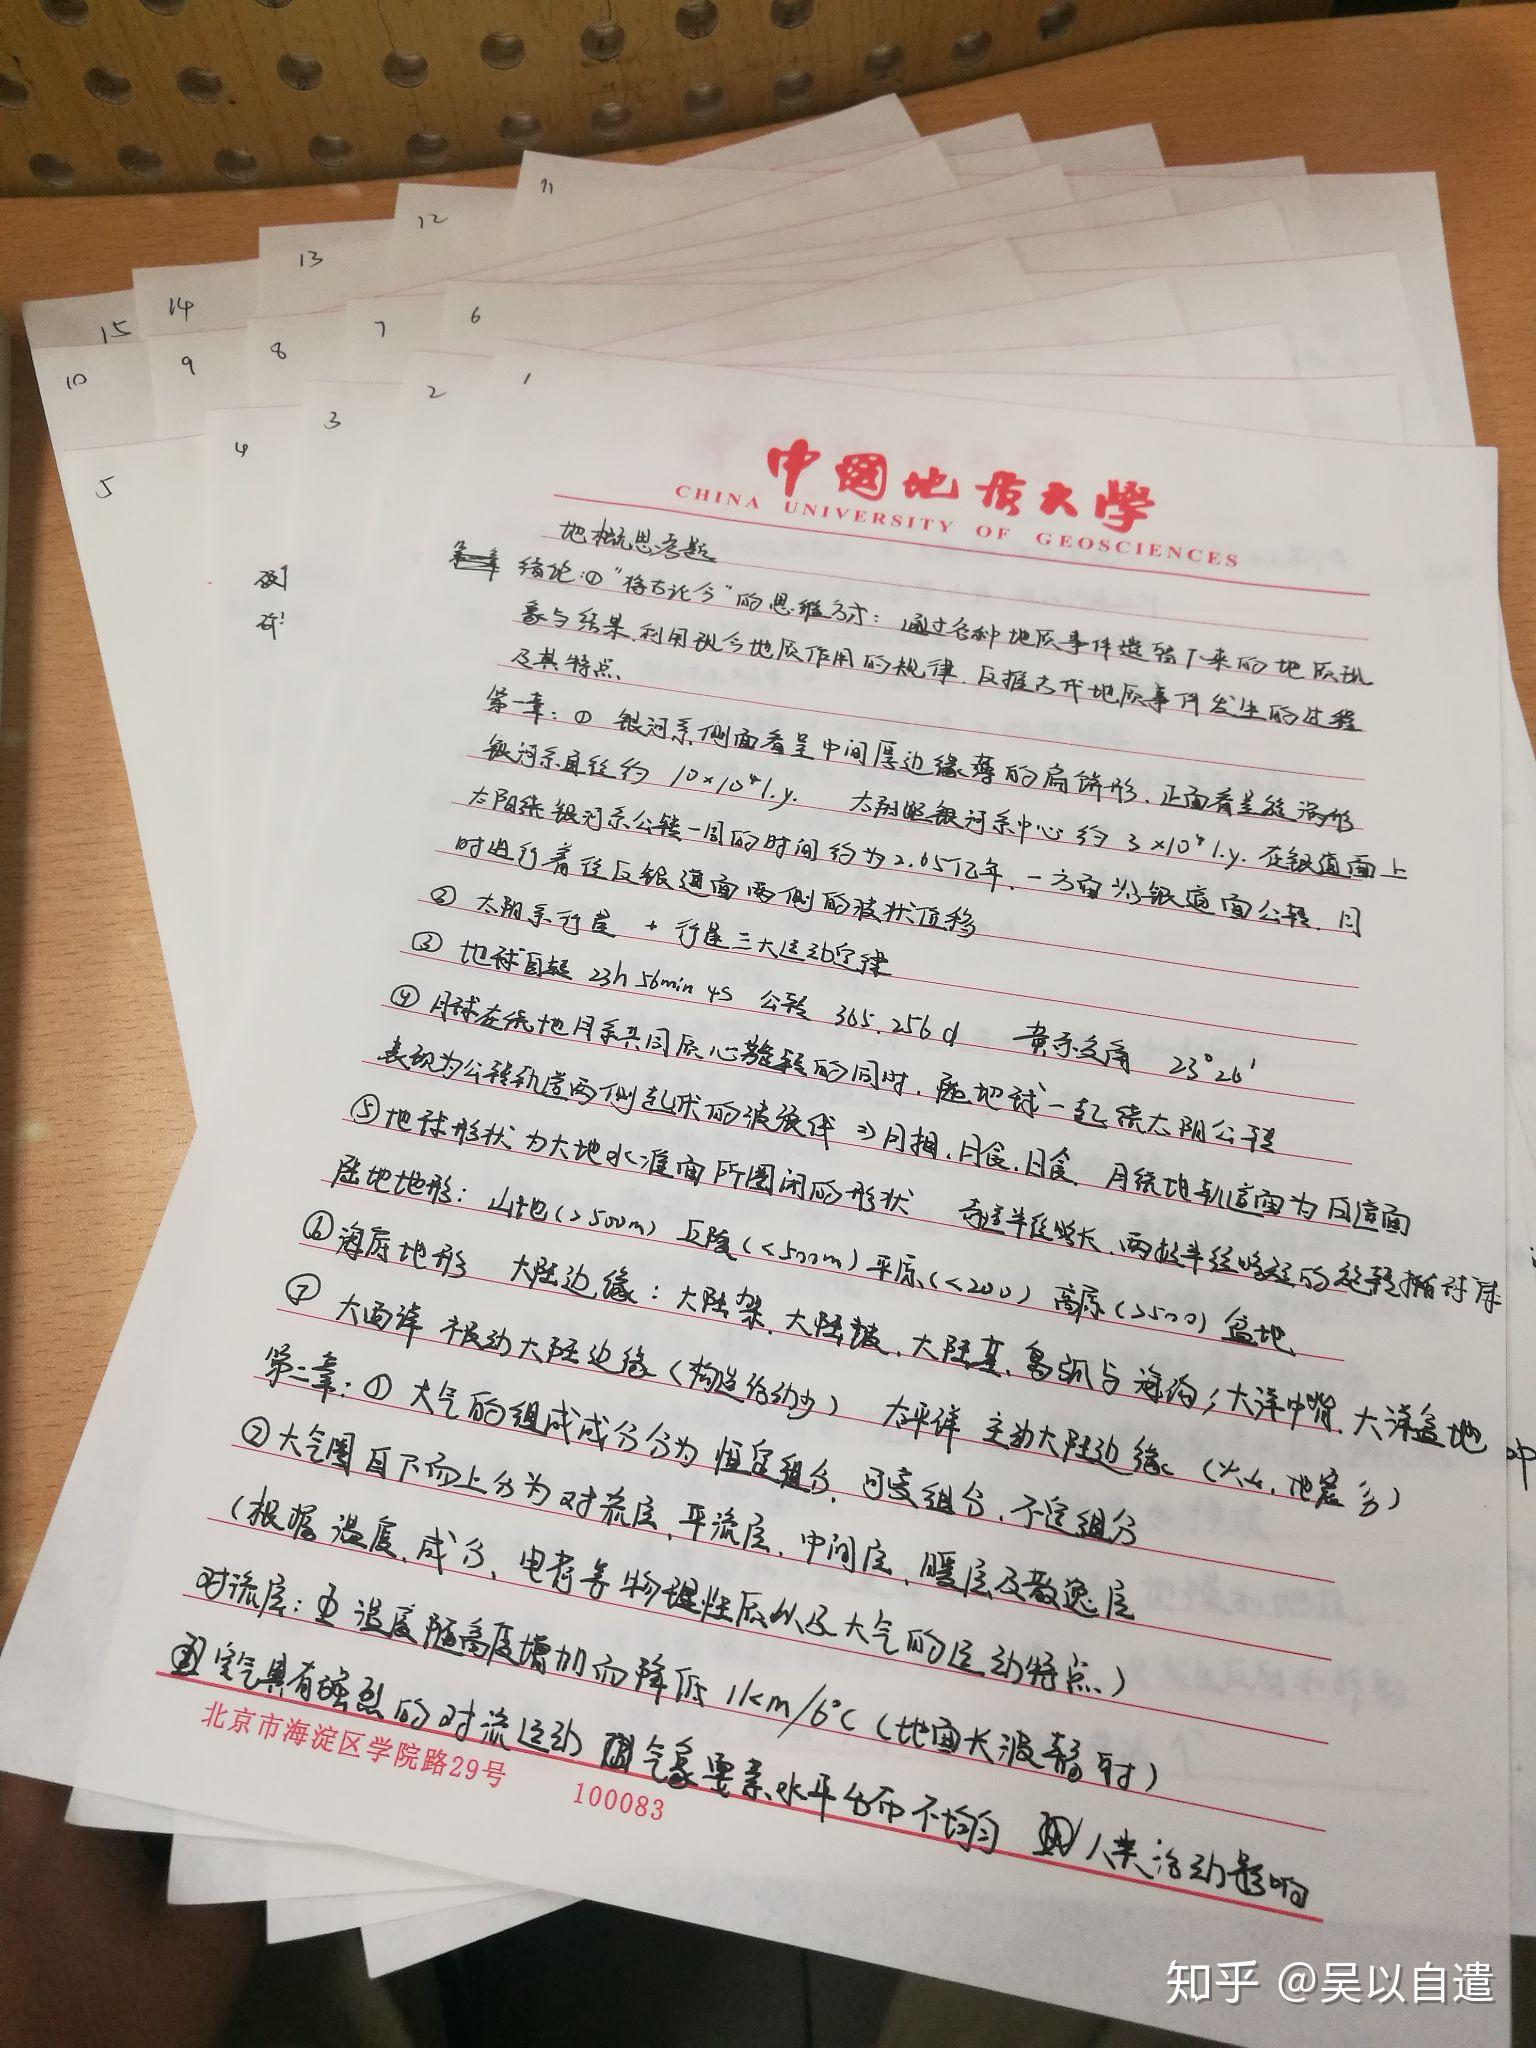 11
12
13
14
15
6
7
8
9
10
1
2
3
4
5
中国地质大学
CHINA UNIVERSITY OF GEOSCIENCES
地概思考题
绪论:①"将古论今"的思维方式:通过各种地质事件遗留下来的地质现
象与结果,利用现今地质作用的规律,反推古代地质事件发生的过程
及其特点.
第一章:① 银河系侧面看呈中间厚边缘薄的扁饼形,正面看呈旋涡形
银河系直径约 10×10⁴l.y. 太阳距银河系中心约 3×10⁴l.y. 在银道面上
太阳绕银河系公转一周的时间约为2.05亿年,一方面沿银道面公转,同
时进行着往反银道面两侧的波状位移
② 太阳系行星 + 行星三大运动定律
③ 地球自转 23h 56min 4s 公转 365.256d 黄赤交角 23°26′
④月球在绕地月系共同质心旋转的同时,随地球一起绕太阳公转
表现为公转轨道两侧起伏的波浪线⇒月相,月食,日食. 月绕地轨道面为白道面
⑤地球形状为大地水准面所圈闭的形状 赤道半径略长,两极半径略短的旋转椭球体
陆地地形:山地(>500m)丘陵(<500m)平原(<200)高原(>500)盆地
⑥海底地形 大陆边缘:大陆架,大陆坡,大陆基,岛弧与海沟;大洋中脊,大洋盆地
⑦ 大西洋 被动大陆边缘(构造活动少) 太平洋 主动大陆边缘(火山,地震多)
第二章:① 大气的组成成分分为恒定组分,可变组分,不定组分
②大气圈自下而上分为对流层,平流层,中间层,暖层及散逸层
(根据温度,成分,电荷等物理性质以及大气的运动特点.)
对流层:Ⅰ温度随高度增加而降低 1km/6℃(地面长波辐射)
Ⅱ空气具有强烈的对流运动 Ⅲ气象要素水平分布不均匀 Ⅳ人类活动影响
北京市海淀区学院路29号 100083
知乎 @吴以自遣